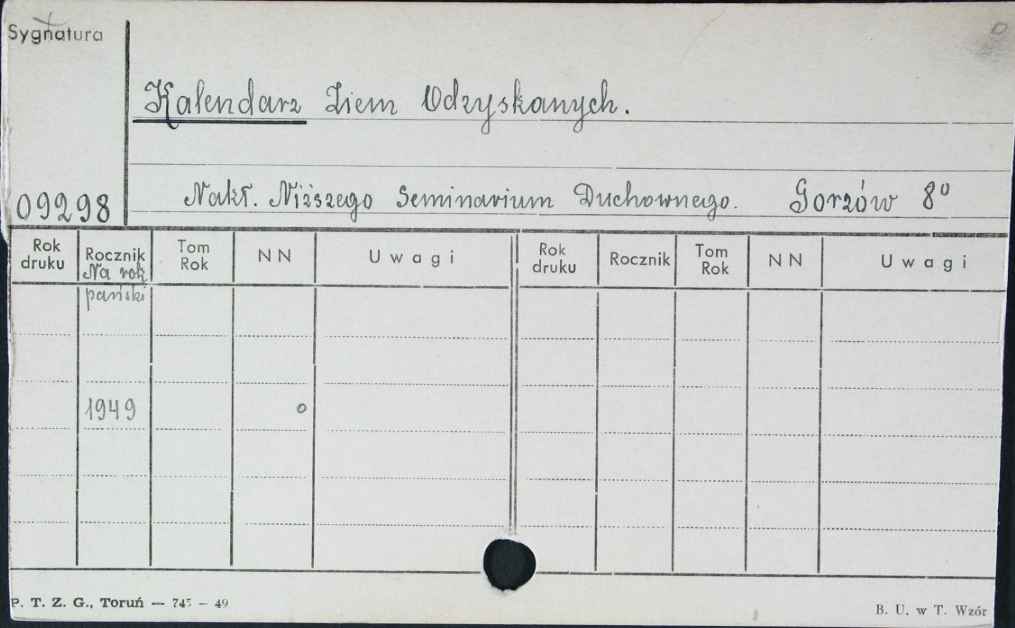 Sygnatura
Kalendarz Ziem Odzyskanych.
09298 Nakł. Niższego Seminarium Duchownego. Gorzów 8º
Rok druku Rocznik Tom Rok NN Uwagi Rok druku Rocznik Tom Rok NN Uwagi
Na rok
pański
1949 o
P. T. Z. G., Toruń — 745 — 49 B. U. w T. Wzór